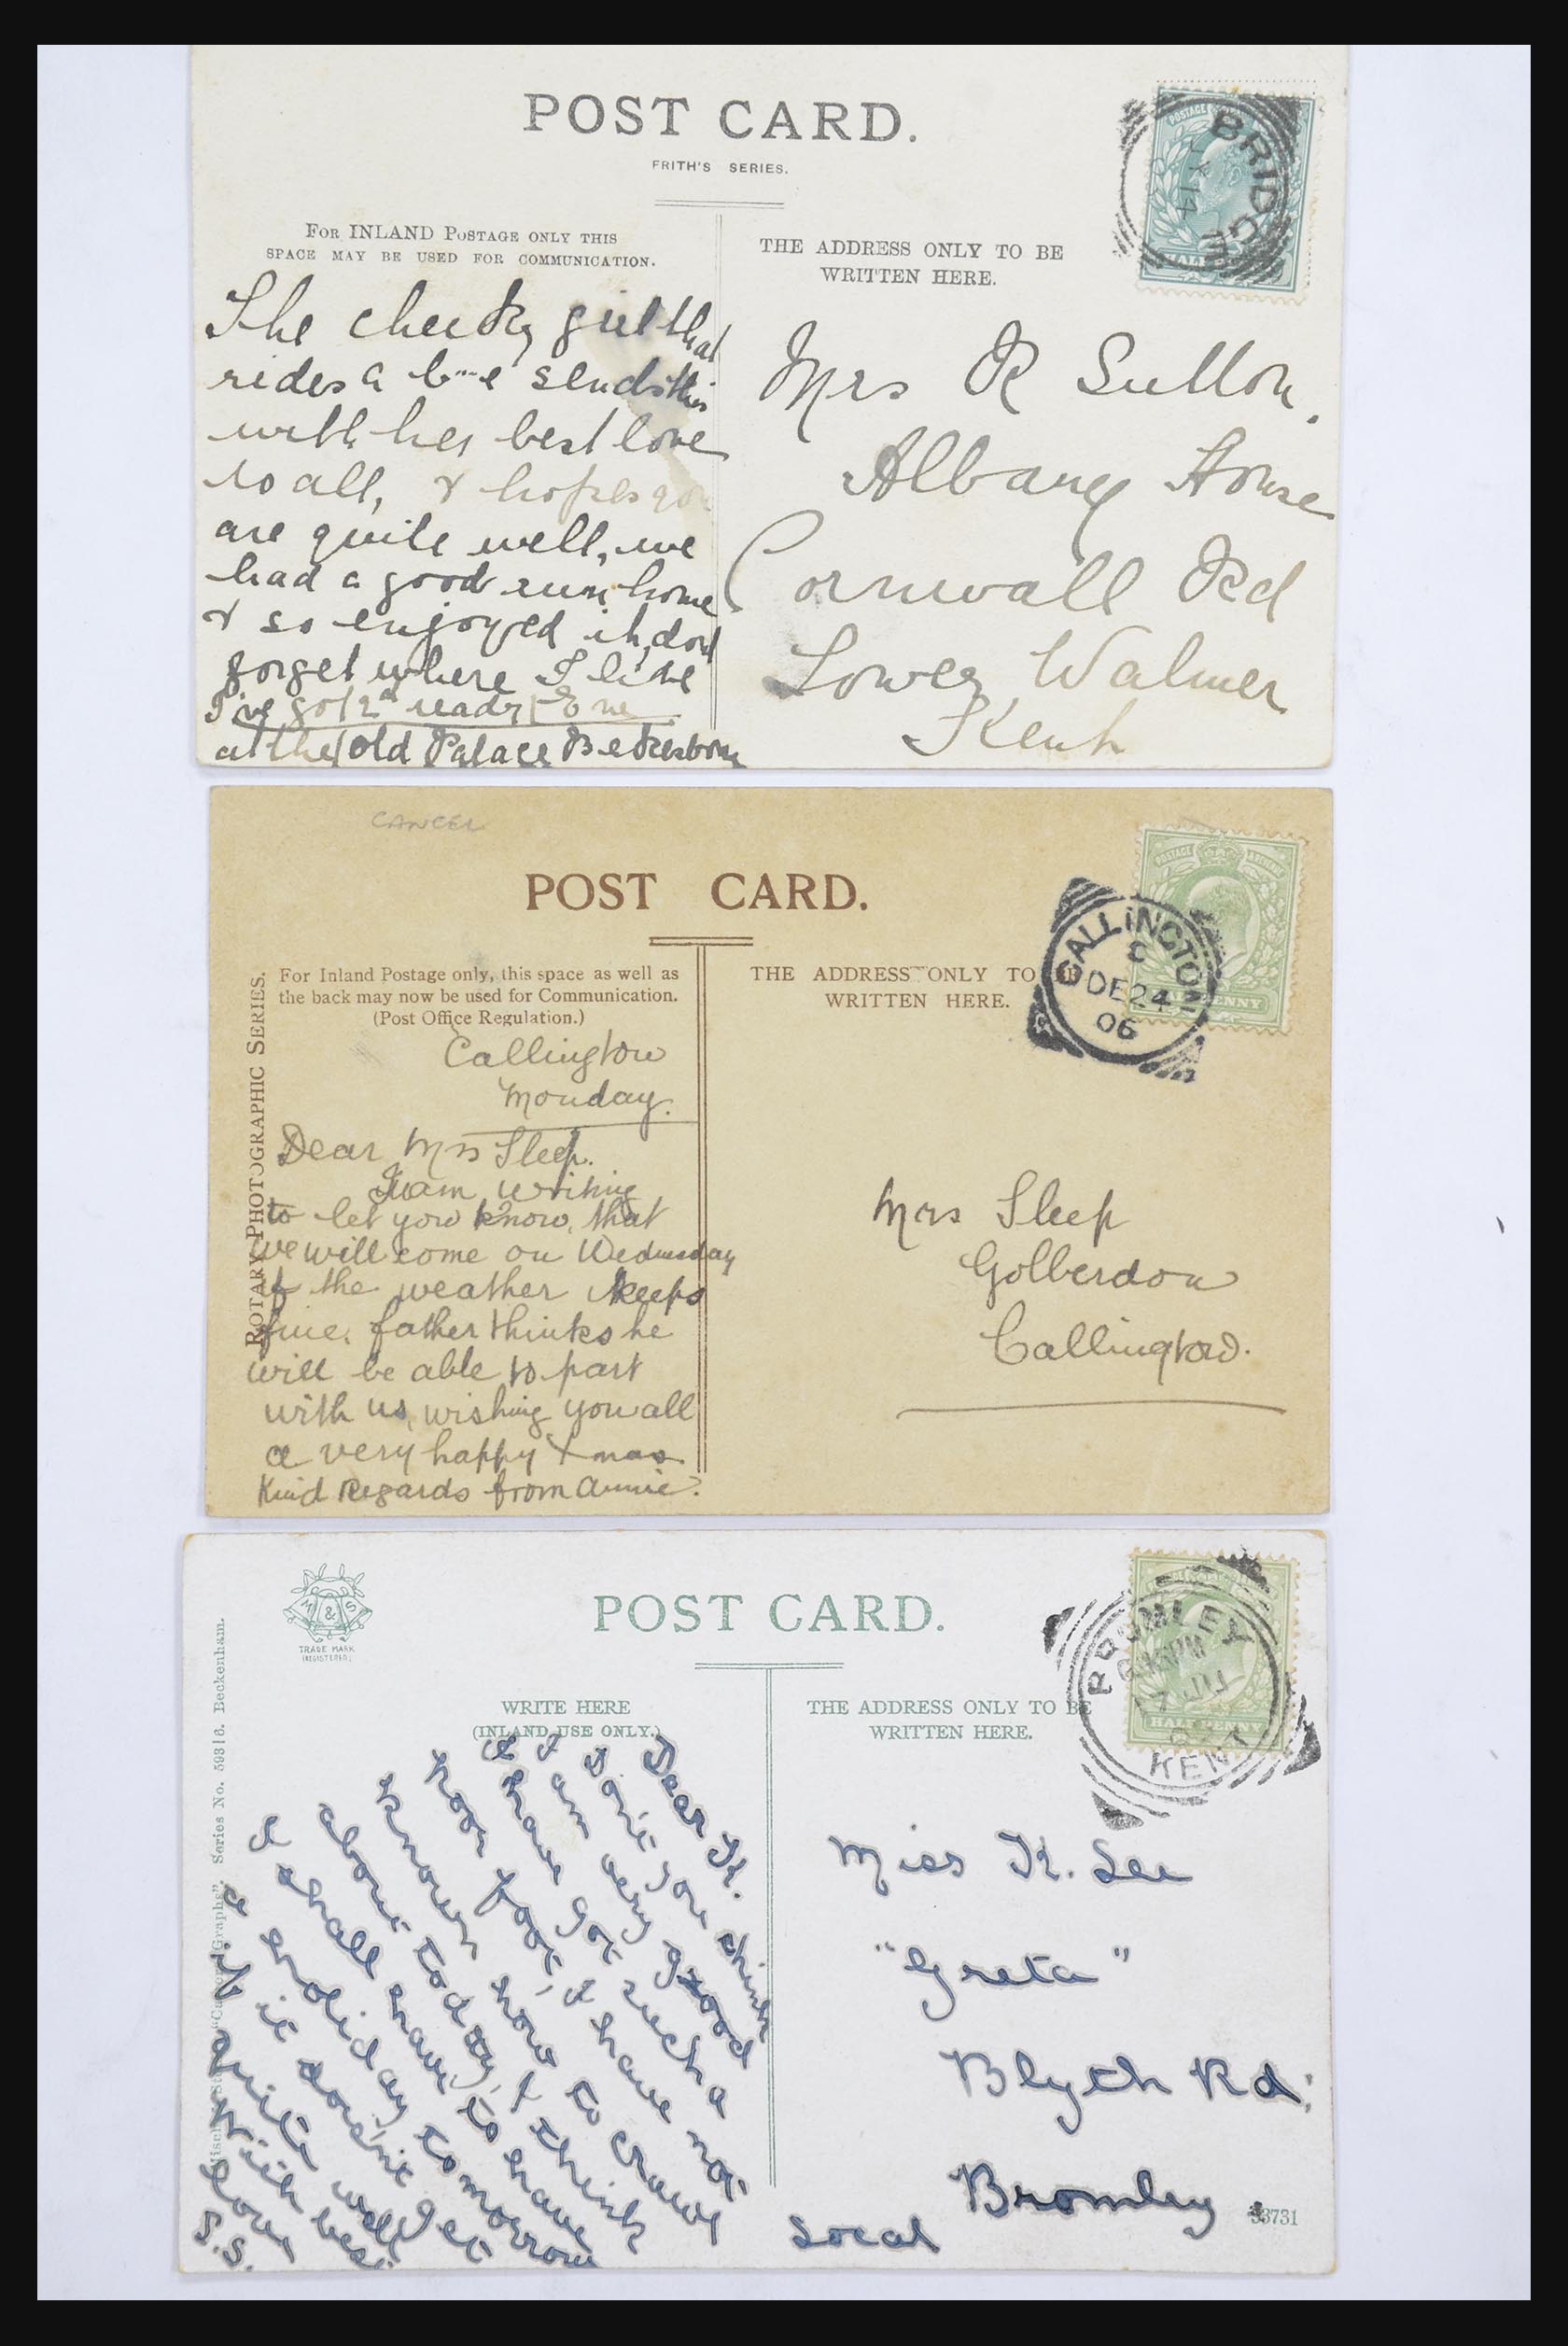 POST CARD.
FRITH'S SERIES.
FOR INLAND POSTAGE ONLY THIS
SPACE MAY BE USED FOR COMMUNICATION.
THE ADDRESS ONLY TO BE
WRITTEN HERE.
BRIDGE
The cheeky girl that
rides a b---e sends this
with her best love
to all, & hopes you
are quite well, we
had a good run home
& so enjoyed it, dont
forget where I live
I've got 2nd ready
at the Old Palace Bekesborn
Mrs R Sutton.
Albany House
Cornwall Rd
Lower Walmer
Kent
CANCEL
POST CARD.
ROTARY PHOTOGRAPHIC SERIES.
For Inland Postage only, this space as well as
the back may now be used for Communication.
(Post Office Regulation.)
THE ADDRESS ONLY TO
WRITTEN HERE.
CALLINGTON
DE 24
06
POSTAGE
Callington
Monday.
Dear Mrs Sleep.
I am writing
to let you know, that
we will come on Wednesday
if the weather keeps
fine. father thinks he
will be able to part
with us, wishing you all
a very happy Xmas.
Kind Regards from Annie.
Mrs Sleep
Golberdon
Callington.
M & S
TRADE MARK
(REGISTERED)
POST CARD.
WRITE HERE
(INLAND USE ONLY.)
THE ADDRESS ONLY TO BE
WRITTEN HERE.
Series No. 5931d. Beckenham.
BROMLEY
KENT
HALFPENNY
Dear K.
Dont you think
I am very good
I have got such a
poor foot, I have not
known how to crawl
about today, I think
I shall have to have
a holiday tomorrow
if it doesn't get
quite well
With best
love
S.S.
Miss K. See
"Greta"
Blyth Rd:
Bromley
Local
33731